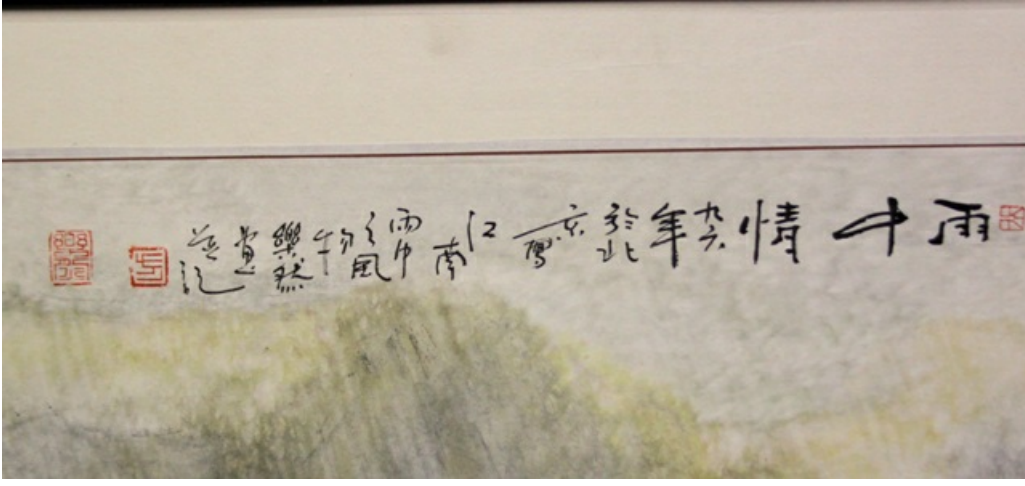 雨中情 九六年於北京寫江南雨中之風物樂然畫並記